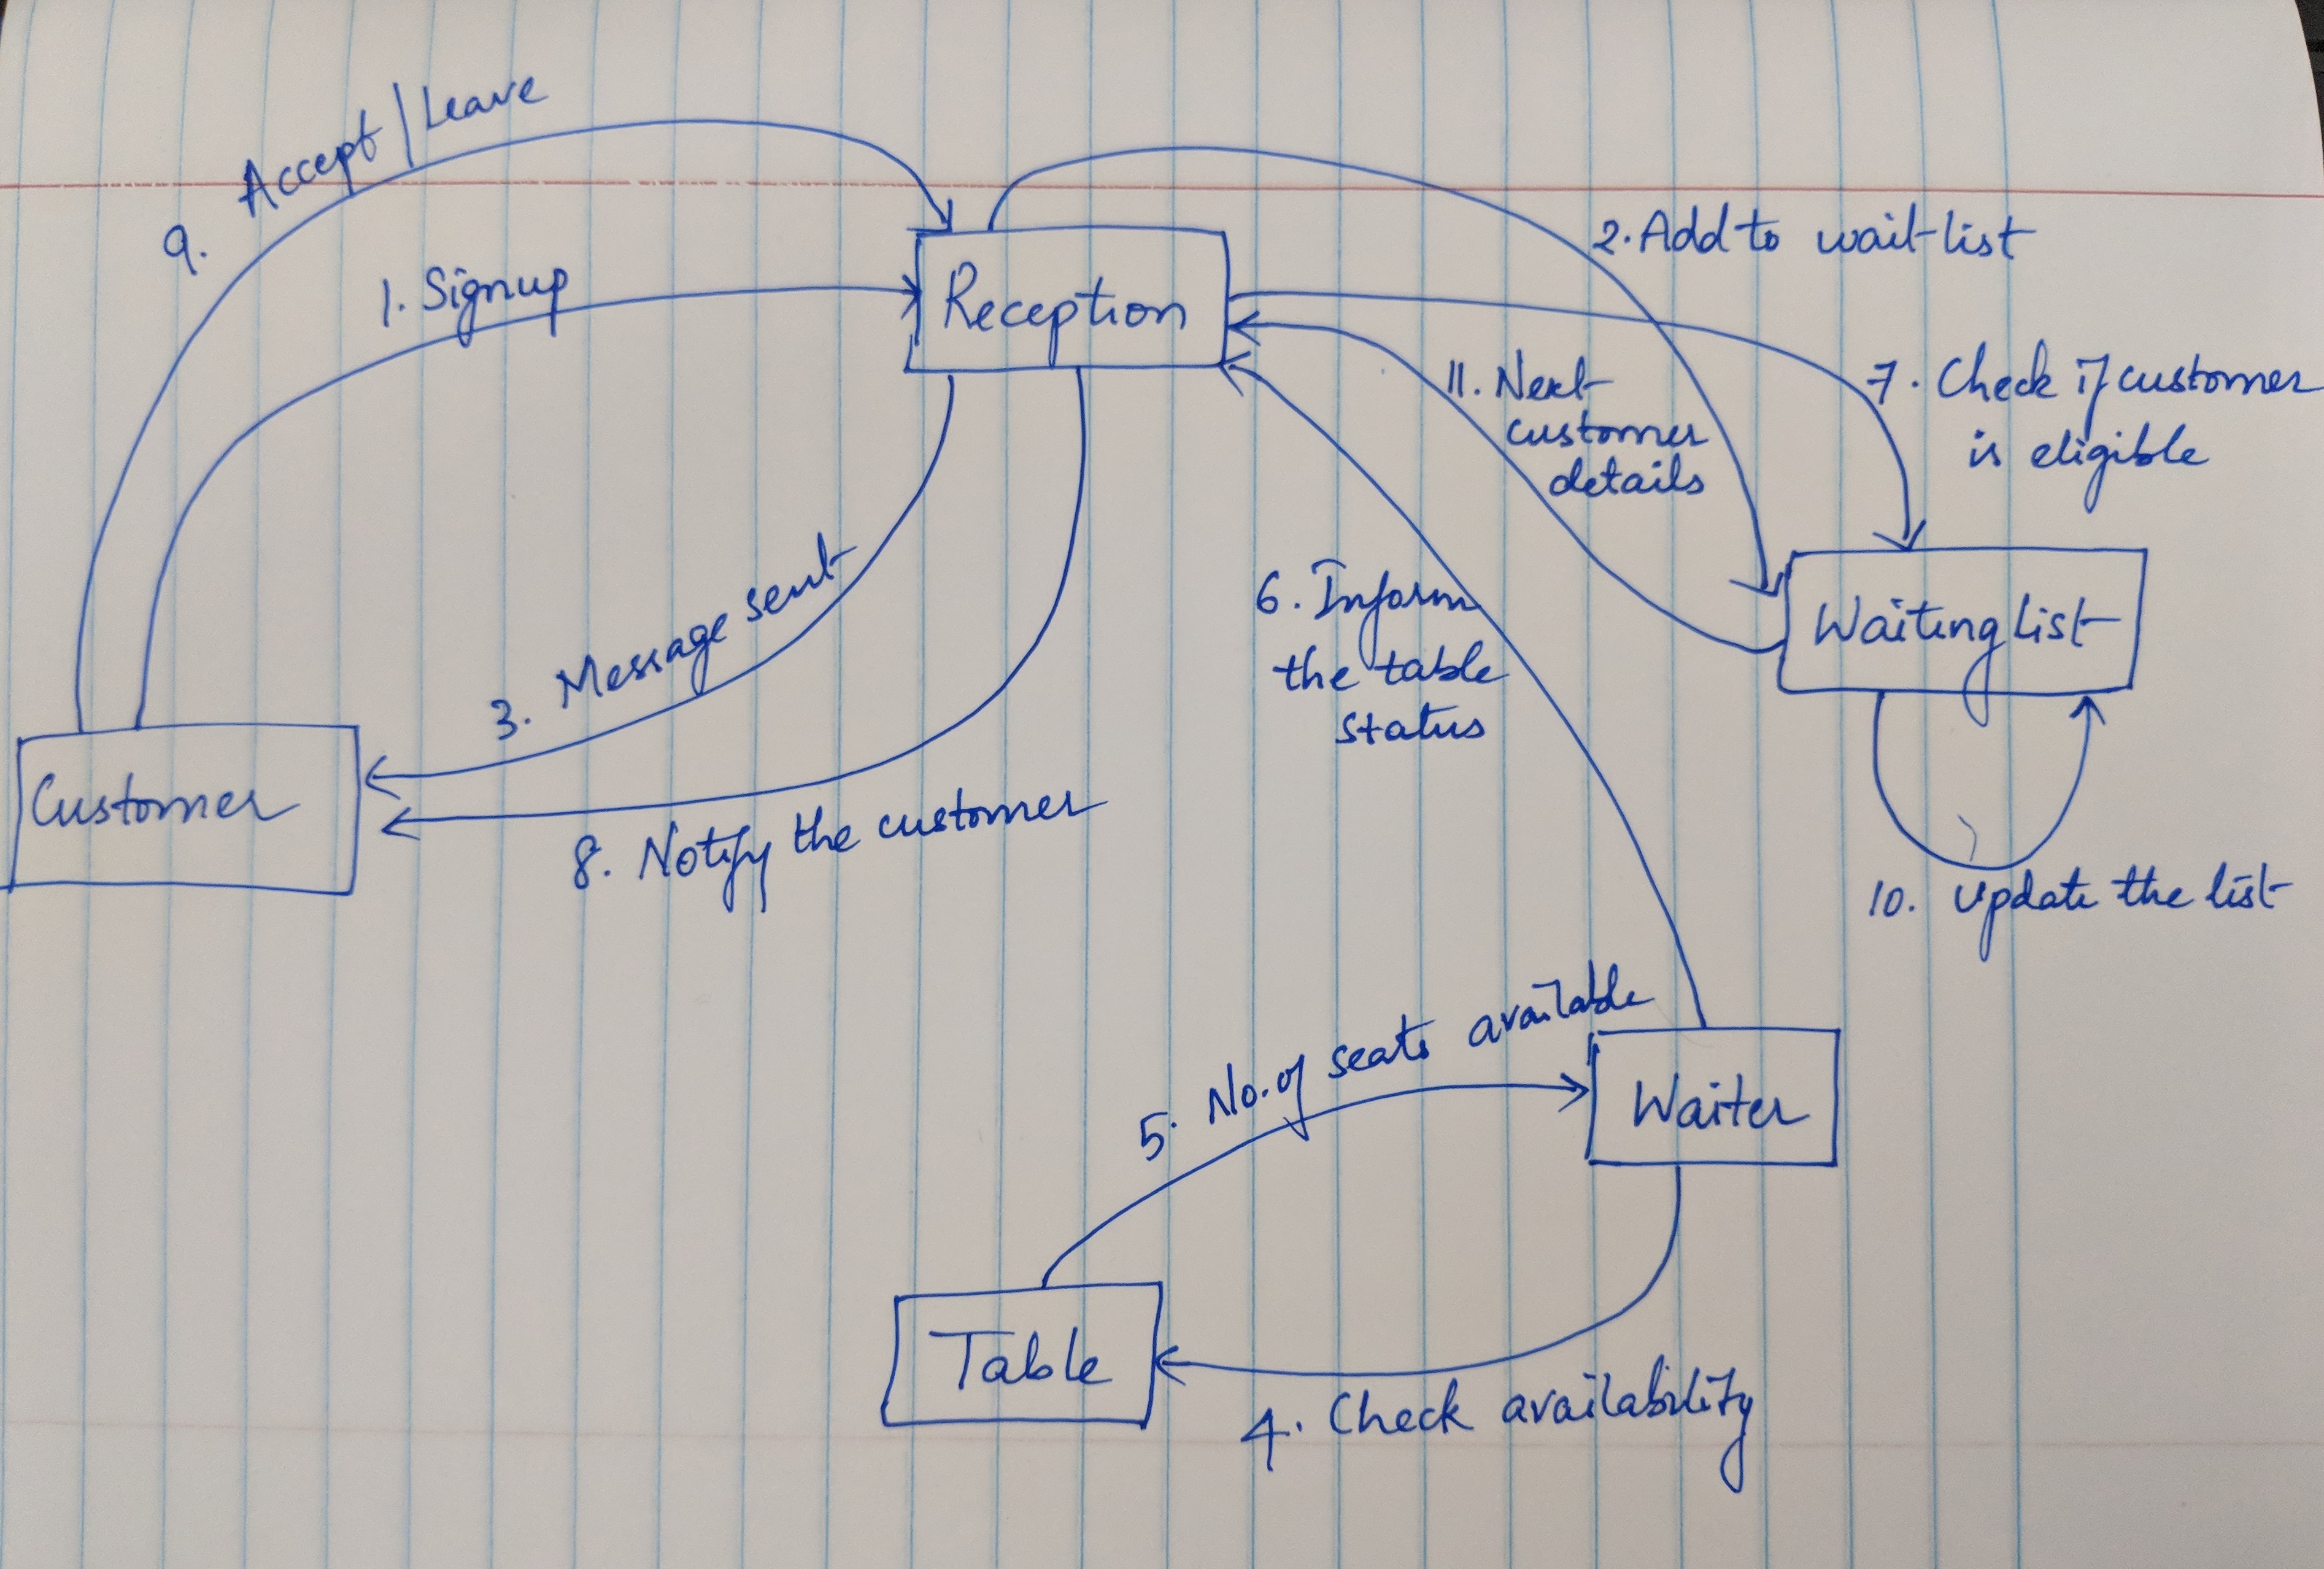 9. Accept/Leave
1. Signup
Reception
2. Add to wait list
11. Next
customer
details
7. Check if customer
is eligible
3. Message sent
6. Inform
the table
status
Waiting list
Customer
8. Notify the customer
10. Update the list
5. No. of seats available
Waiter
Table
4. Check availability